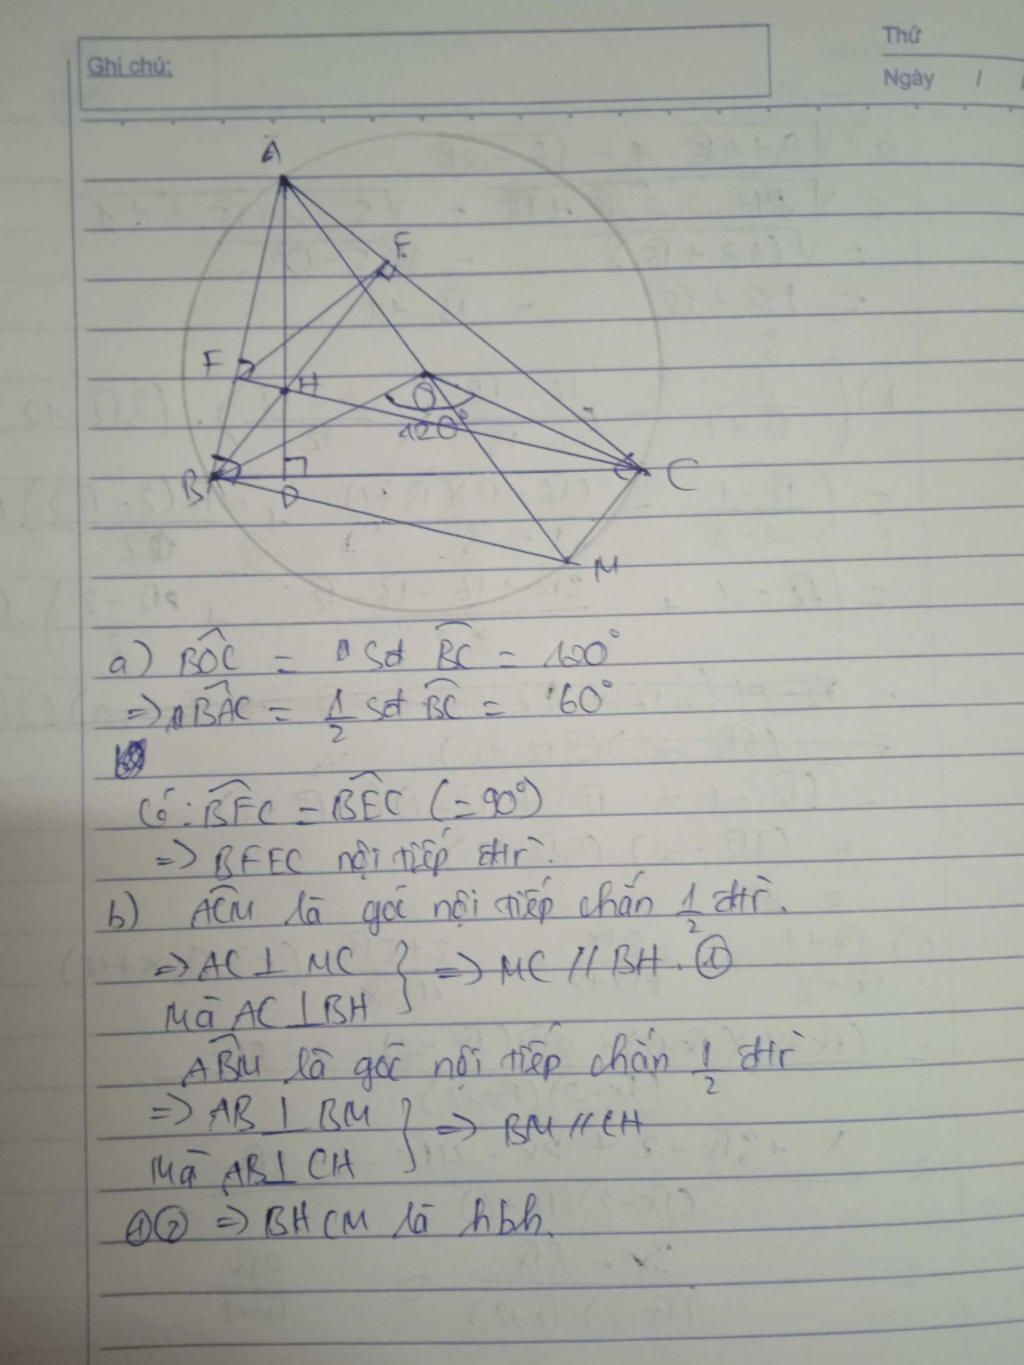 Ghi chú:
Thứ
Ngày / /
A
E
F
H
O
120°
B
D
C
M
a) BOC = sđ BC = 120°
=> BAC = 1/2 sđ BC = 60°
Có: BFC = BEC (= 90°)
=> BFEC nội tiếp đtr.
b) ACM là góc nội tiếp chắn 1/2 đtr.
=> AC ⊥ MC } => MC // BH. ①
Mà AC ⊥ BH
ABM là góc nội tiếp chắn 1/2 đtr
=> AB ⊥ BM } => BM // CH
Mà AB ⊥ CH
①② => BHCM là hbh.